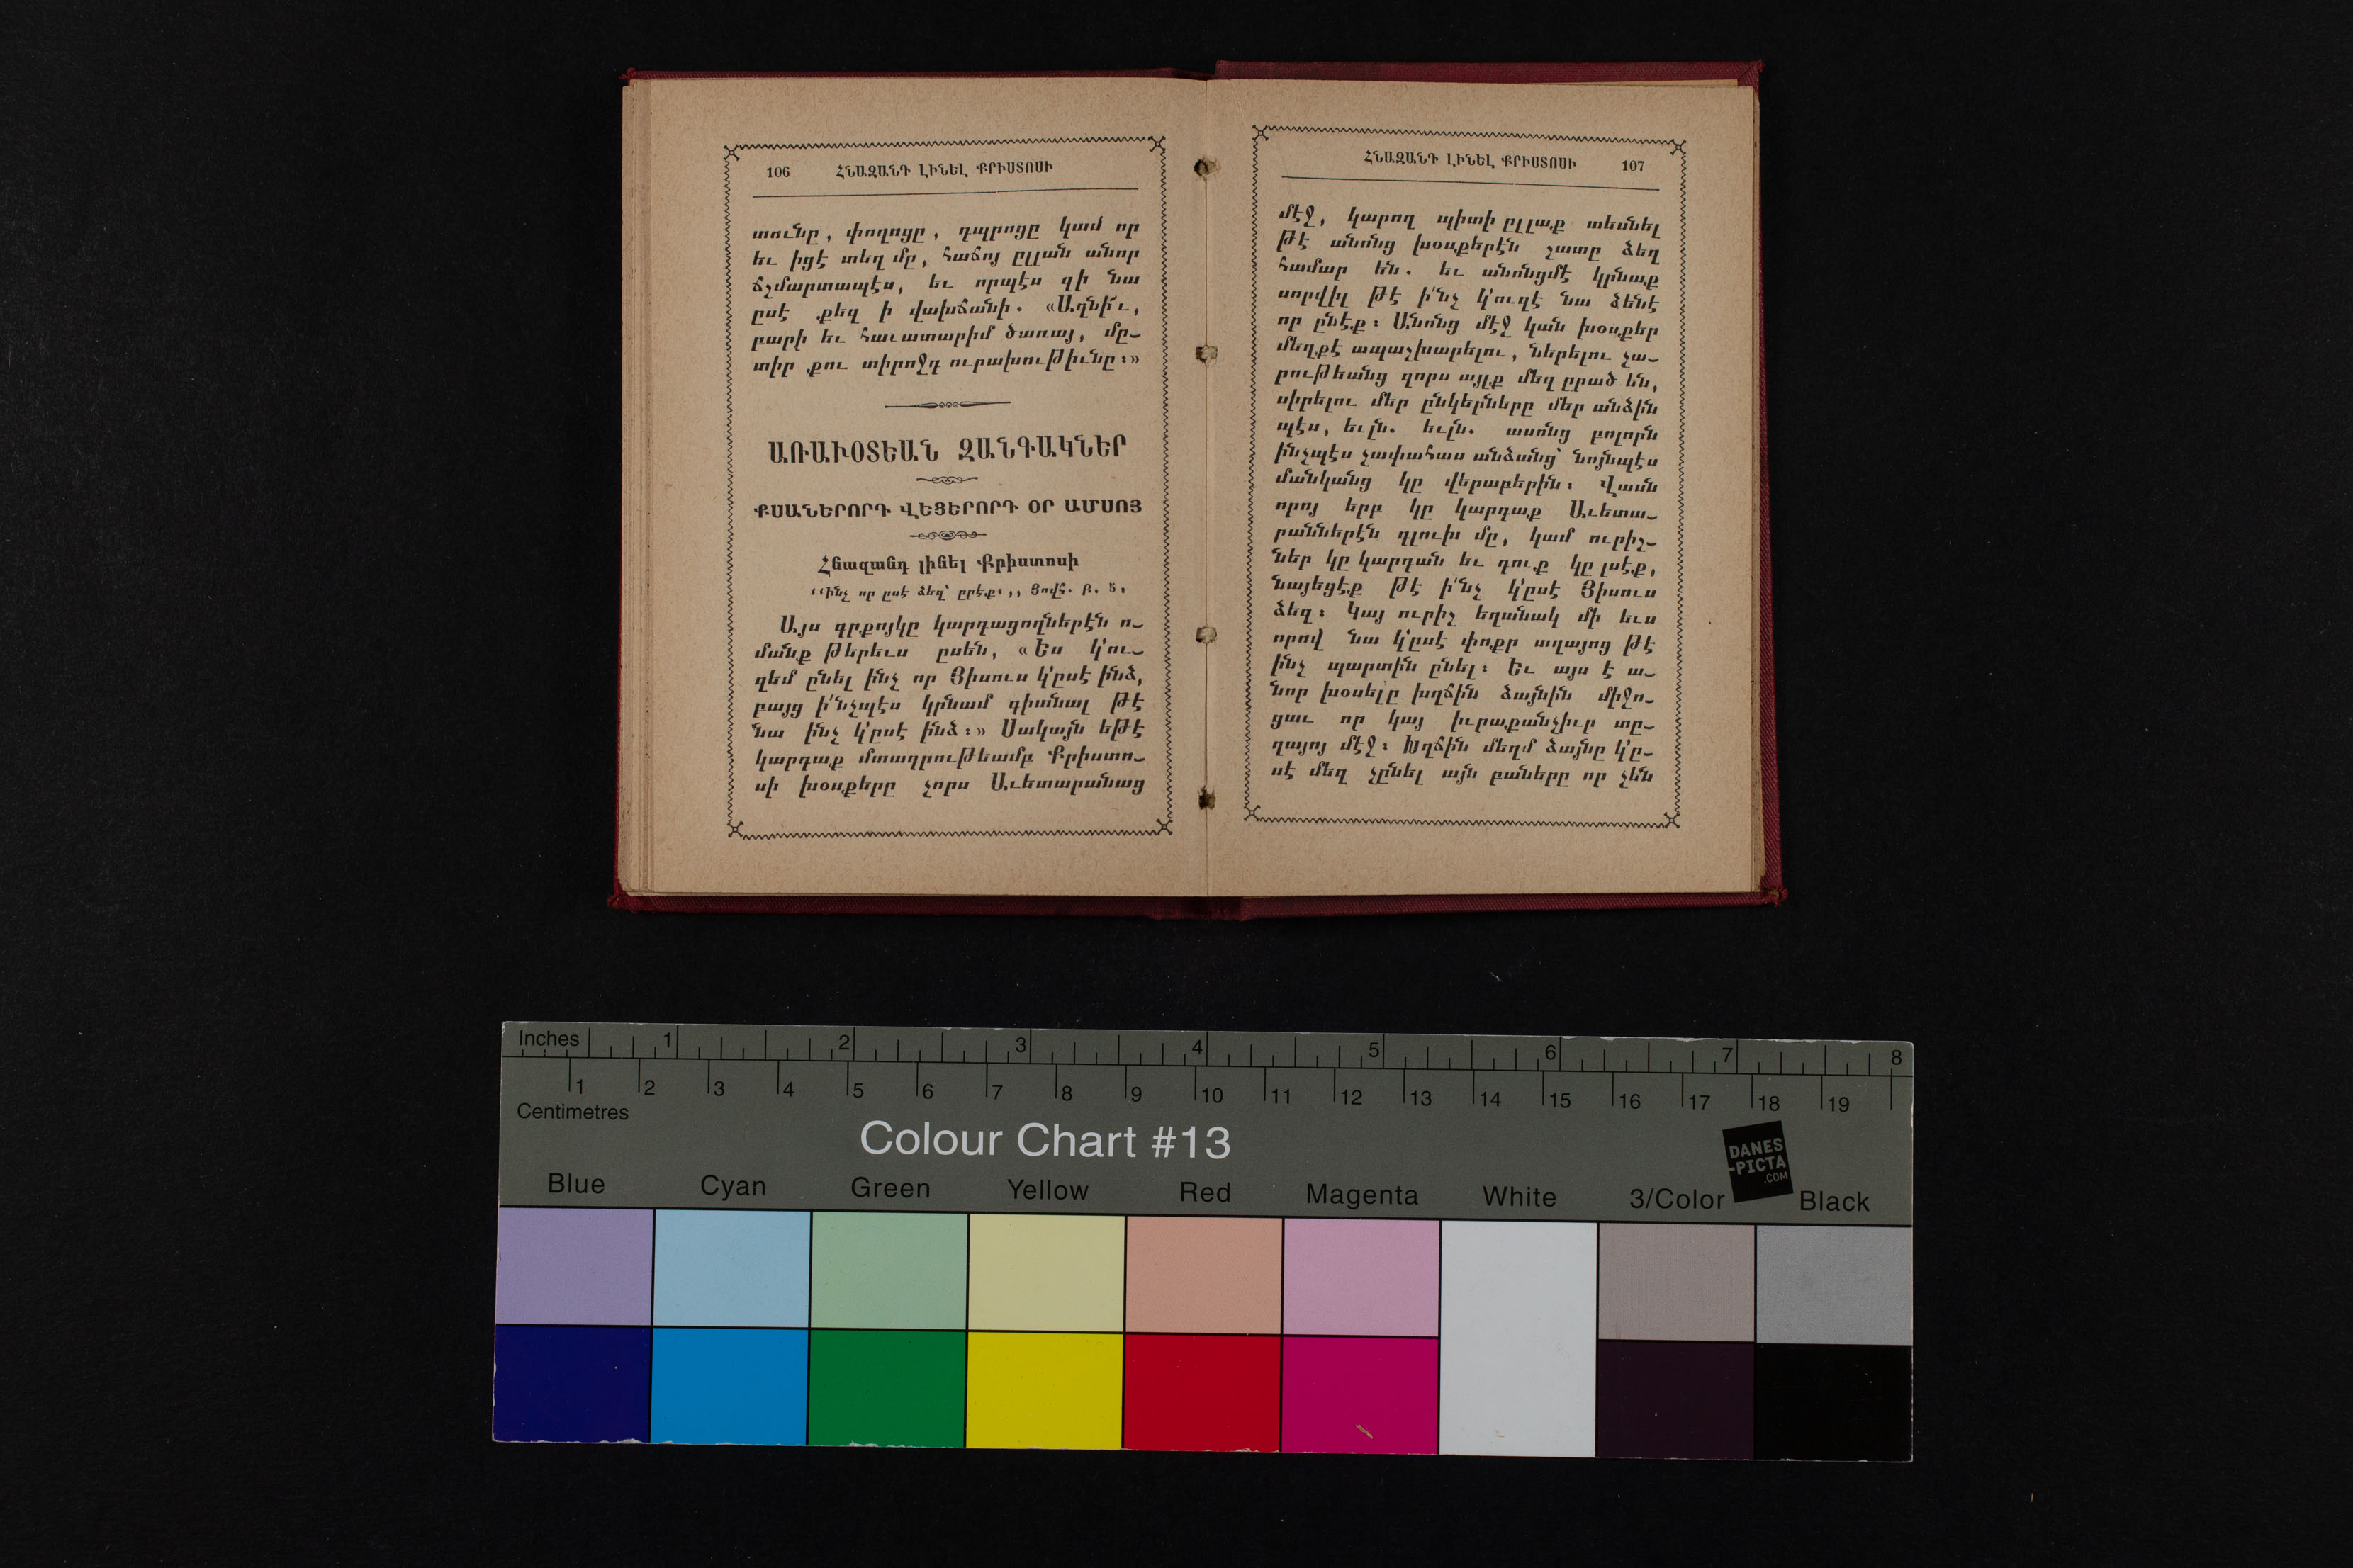 106 ՀՆԱԶԱՆԴ ԼԻՆԵԼ ՔՐԻՍՏՈՍԻ
տունը, փողոցը, դպրոցը կամ որ
եւ իցէ տեղ մը, հաճոյ ըլլան անոր
ճշմարտապէս, եւ որպէս զի նա
ըսէ քեզ ի վախճանի. «Ազնի՜ւ,
բարի եւ հաւատարիմ ծառայ, մը-
տիր քու տիրոջդ ուրախութիւնը։»
ԱՌԱՒՕՏԵԱՆ ԶԱՆԳԱԿՆԵՐ
ՔՍԱՆԵՐՈՐԴ ՎԵՑԵՐՈՐԴ ՕՐ ԱՄՍՈՅ
Հնազանդ լինել Քրիստոսի
‘‘Ինչ որ ըսէ ձեզ՝ ըրէք.,, Յովհ. Բ. 5.
Այս գրքոյկը կարդացողներէն ո-
մանք թերեւս ըսեն, «Ես կ՚ու-
զեմ ընել ինչ որ Յիսուս կ՚ըսէ ինձ,
բայց ի՛նչպէս կրնամ գիտնալ թէ
նա ինչ կ՚ըսէ ինձ։» Սակայն եթէ
կարդաք մտադրութեամբ Քրիստո-
սի խօսքերը չորս Աւետարանաց
ՀՆԱԶԱՆԴ ԼԻՆԵԼ ՔՐԻՍՏՈՍԻ 107
մէջ, կարող պիտի ըլլաք տեսնել
թէ անոնց խօսքերէն շատը ձեզ
համար են. եւ անոնցմէ կրնաք
սորվիլ թէ ի՛նչ կ՚ուզէ նա ձենէ
որ ընէք։ Անոնց մէջ կան խօսքեր
մեղքէ ապաշխարելու, ներելու չա-
րութեանց զորս այլք մեզ ըրած են,
սիրելու մեր ընկերները մեր անձին
պէս, եւլն. եւլն. ասոնց բոլորն
ինչպէս չափահաս անձանց՝ նոյնպէս
մանկանց կը վերաբերին։ Վասն
որոյ երբ կը կարդաք Աւետա-
րաններէն գլուխ մը, կամ ուրիշ-
ներ կը կարդան եւ դուք կը լսէք,
նայեցէք թէ ի՛նչ կ՚ըսէ Յիսուս
ձեզ։ Կայ ուրիշ եղանակ մի եւս
որով նա կ՚ըսէ փոքր տղայոց թէ
ինչ պարտին ընել։ Եւ այս է ա-
նոր խօսելը խղճին ձայնին միջո-
ցաւ որ կայ իւրաքանչիւր տը-
ղայոյ մէջ։ Խղճին մեղմ ձայնը կ՚ը-
սէ մեզ չընել այն բաները որ չեն
Inches 1 2 3 4 5 6 7 8
1 2 3 4 5 6 7 8 9 10 11 12 13 14 15 16 17 18 19
Centimetres
Colour Chart #13
DANES
-PICTA
.COM
Blue Cyan Green Yellow Red Magenta White 3/Color Black